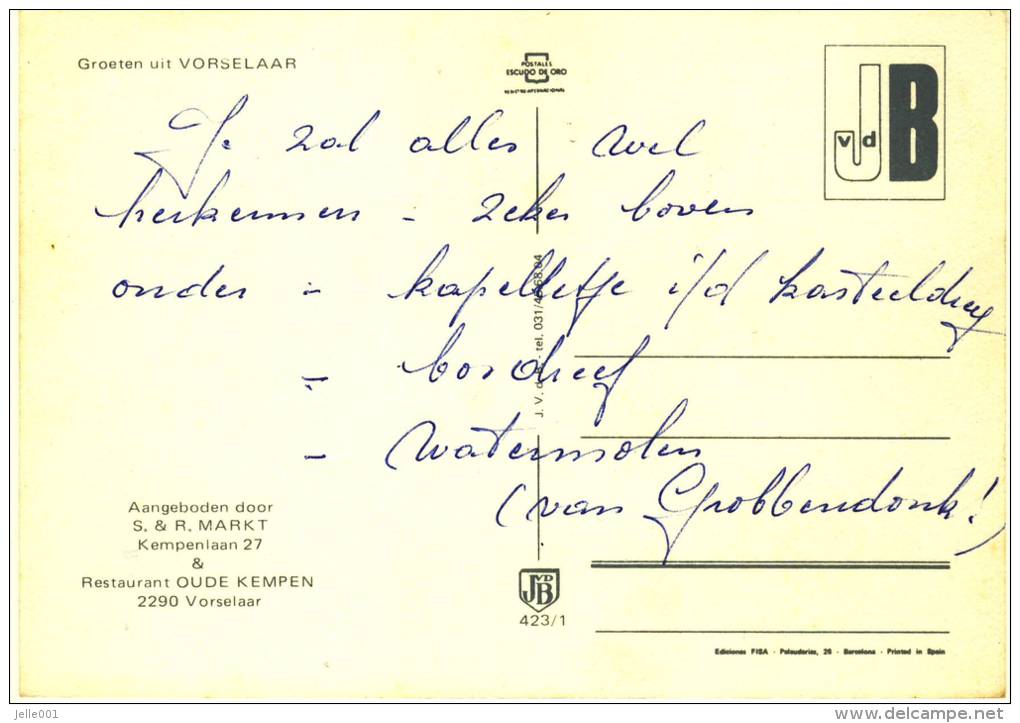 Groeten uit VORSELAAR
POSTALES
ESCUDO DE ORO
J vd B
Je zal alles wel
herkennen - zeker boven
onder - kapelletje i/d kasteeldreef
- bosdreef
- Watermolen
(van Grobbendonk!)
Aangeboden door
S. & R. MARKT
Kempenlaan 27
&
Restaurant OUDE KEMPEN
2290 Vorselaar
J. V. d. B. - tel. 031/
68.04
JVDB
423/1
Ediciones FISA - Palaudarias, 26 - Barcelona - Printed in Spain
jelle001
www.delcampe.net